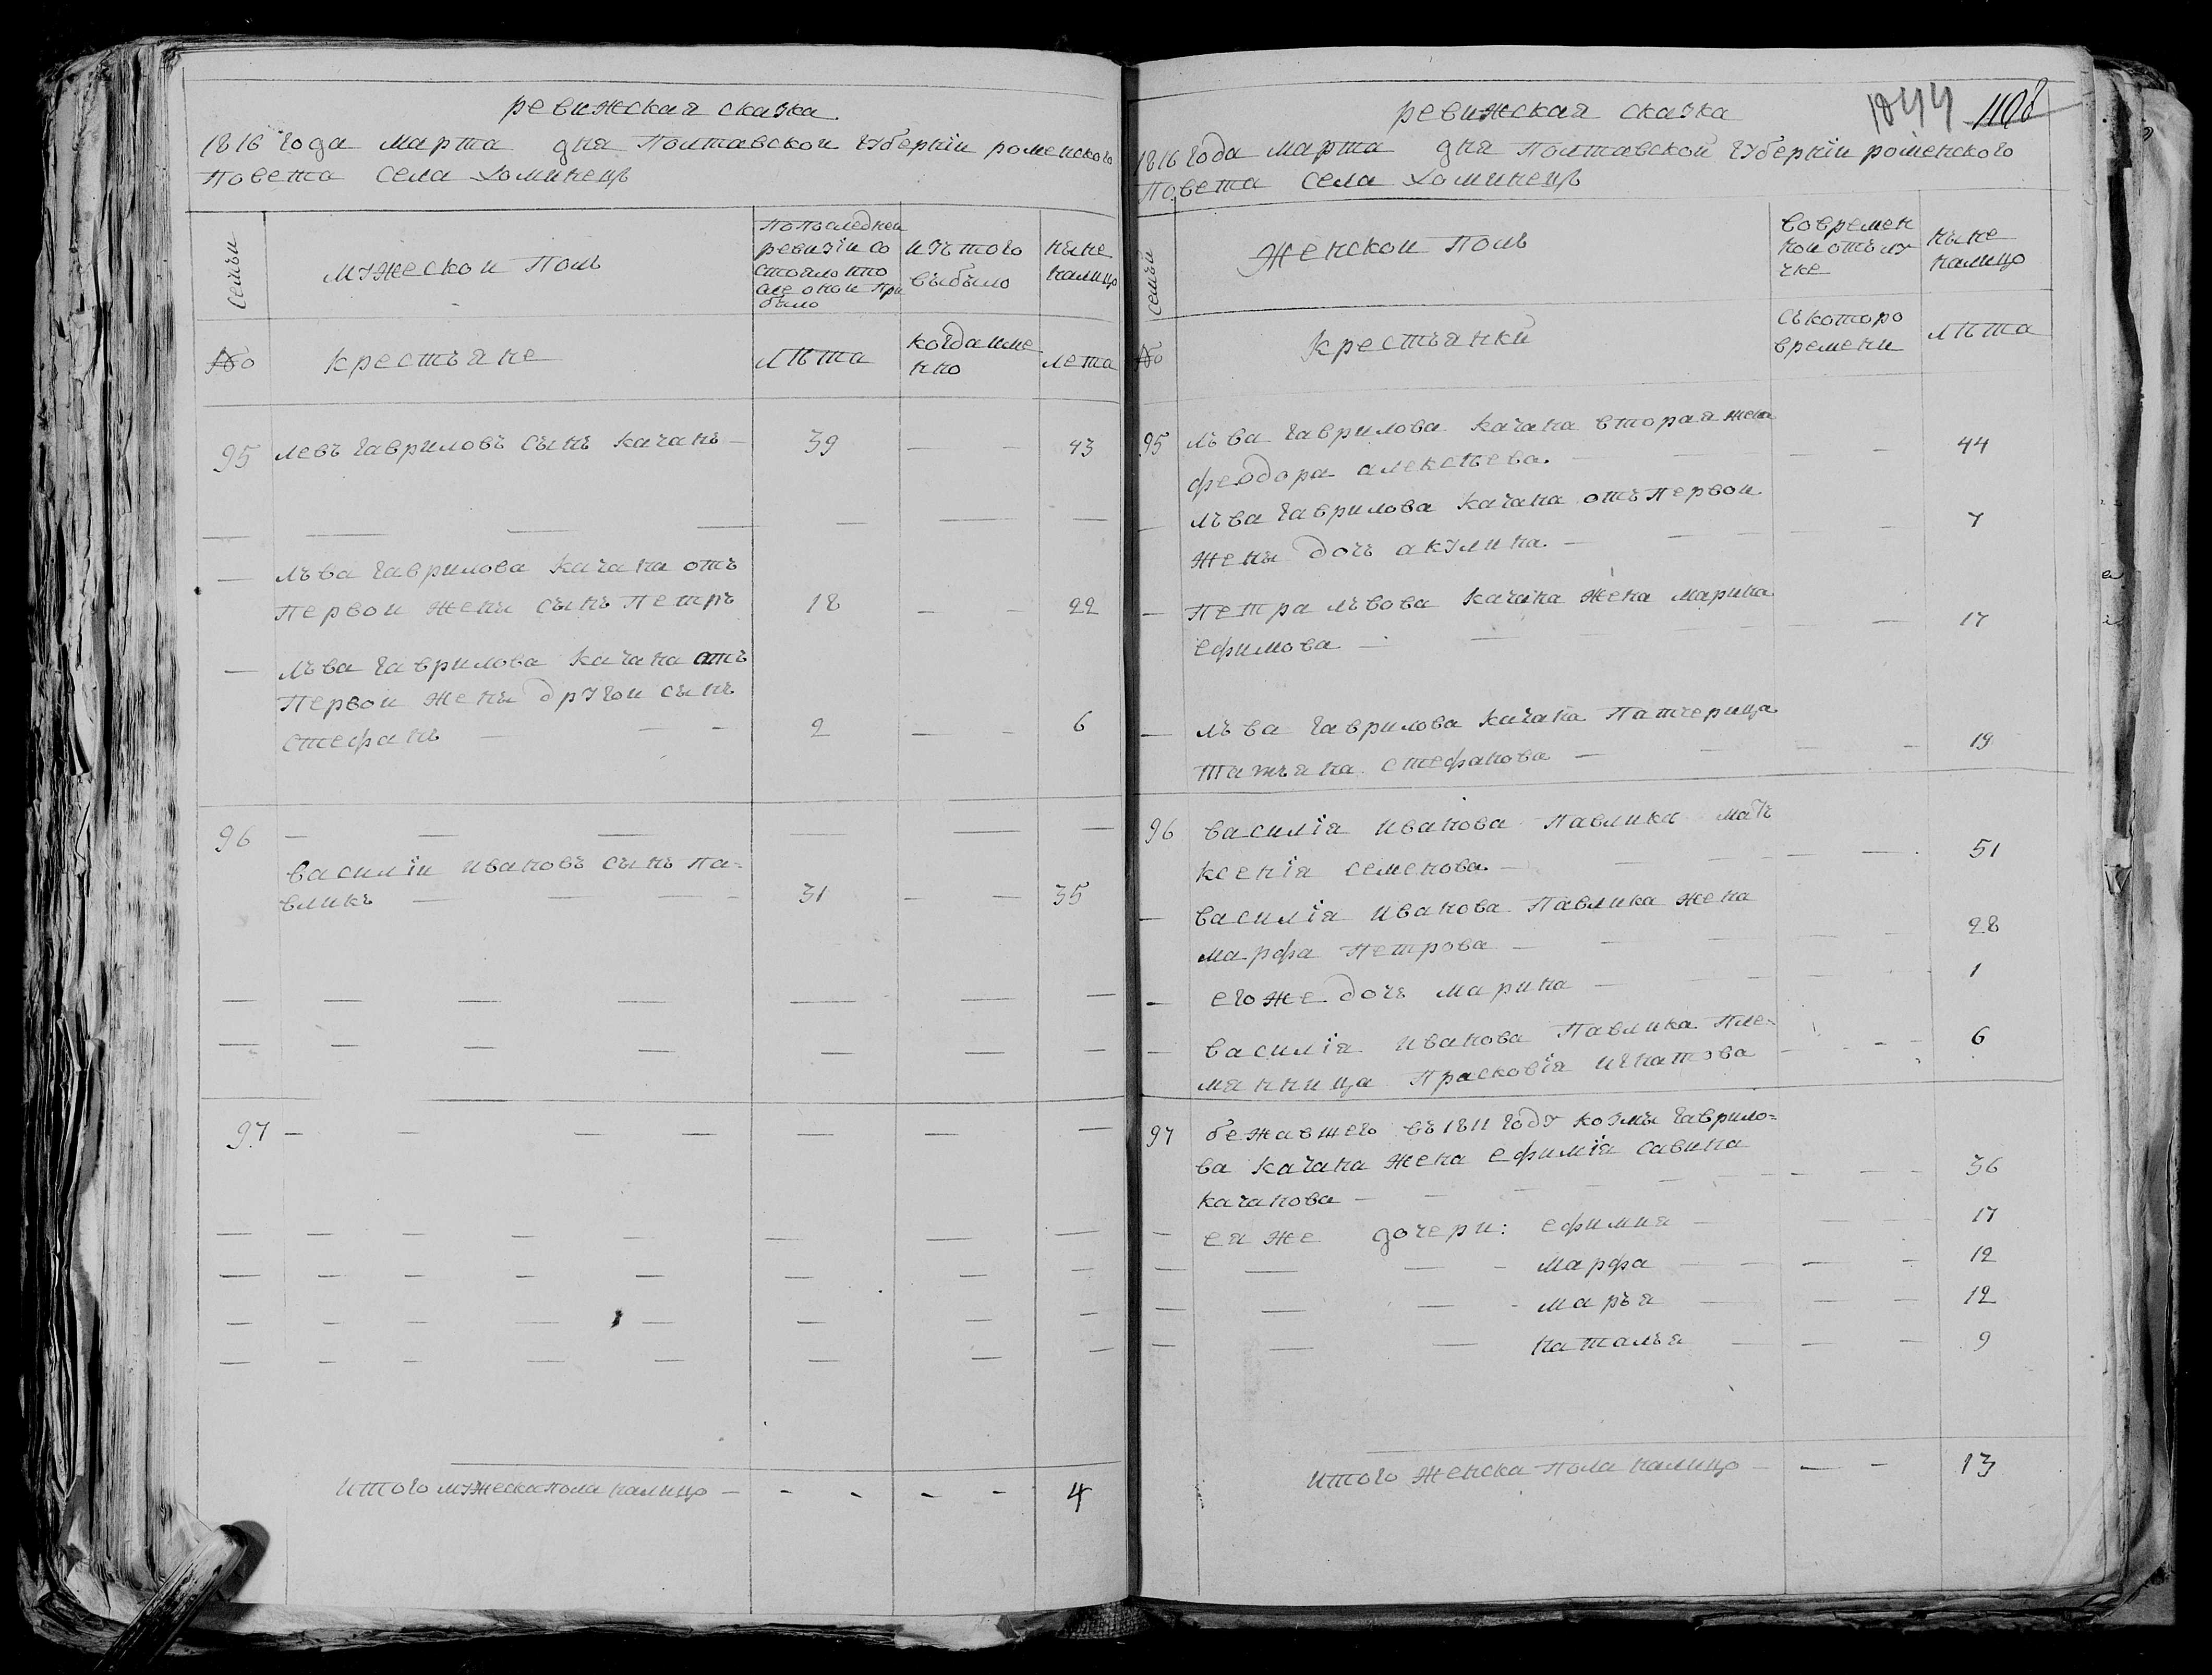 ревижская сказка
1816 года марта дня Полтавской губернiи роменского
Повета села Хоминецъ
семьи
мужескои Полъ
Попоследнеи
ревизiи со
стояло ипо
сле онои При
было
изътого
выбыло
ныне
налицо
№
крестьяне
лѣта
когдаиме
нно
лета
95 левъ гавриловъ сынъ качанъ — 39 — — 43
— льва гаврилова качана отъ
Первои жены сынъ Петръ 18 — — 22
— льва гаврилова качана отъ
Первои жены другои сынъ
стефанъ — — — 2 — — 6
96 — — — — — —
василiи ивановъ сынъ па=
вликъ — — — — 31 — — 35
97 — — — — — — —
итого мужескапола налицо — - - - - 4
1044 1108
ревижская сказка
1816 года марта дня Полтавской губернiи роменского
Повета села Хоминецъ
семьи
Женскои Полъ
вовремен
нои отълу
чке
ныне
налицо
№
крестьянки
съкоторо
времени
лѣта
95 льва гаврилова качана вторая жена
феодора алексѣева — — — — 44
— льва гаврилова качана отъ первои
жены дочь акулина — — — — 7
— Петра львова качана жена марина
ефимова — — — — 17
— льва гаврилова качана Патчерица
татьяна стефанова — — — — 19
96 василiя иванова павлика мать
ксенiя семенова — — — — 51
— василiя иванова Павлика жена
марфа Петрова — — — — 28
— его же дочь марина — — — 1
— василiя иванова Павлика Пле=
мянница Прасковiя игнатова — - - - 6
97 бежавшего въ 1811 году козмы гаврило=
ва качана жена ефимiя савина — — — 36
качанова — - - - - -
— ея же дочери: ефимия — — — 17
— — — - марфа — — — - 12
— — — - марья — — — 12
— — — наталья — — — 9
итого женска пола налицо — — - 13